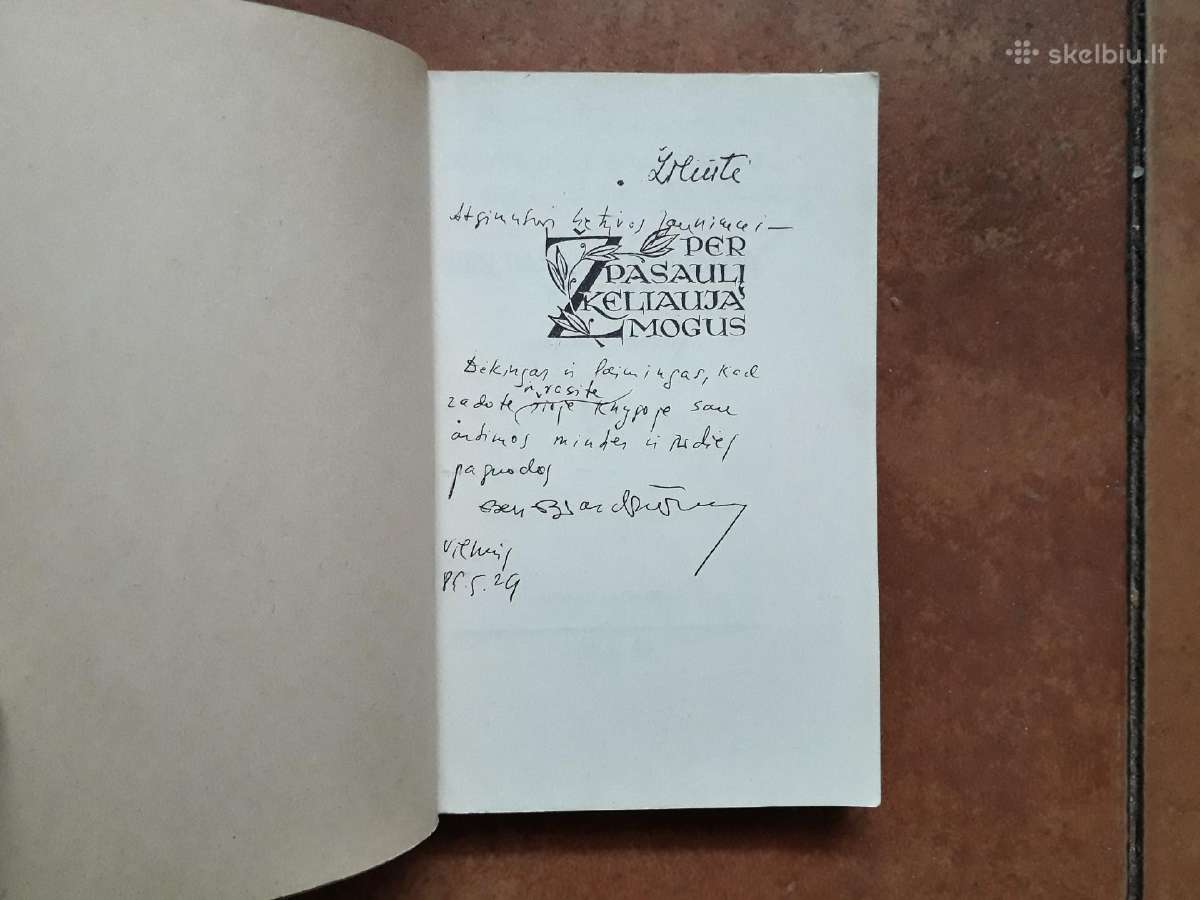 skelbiu.lt
Atgimusiai Lietvos jaunimui —
PER
PASAULĮ
KELIAUJA
ŽMOGUS
Dėkingas ir laimingas, kad
ir rasite
radote šioje knygoje sau
artimos minties ir žodžių
paguodos
Vilnius